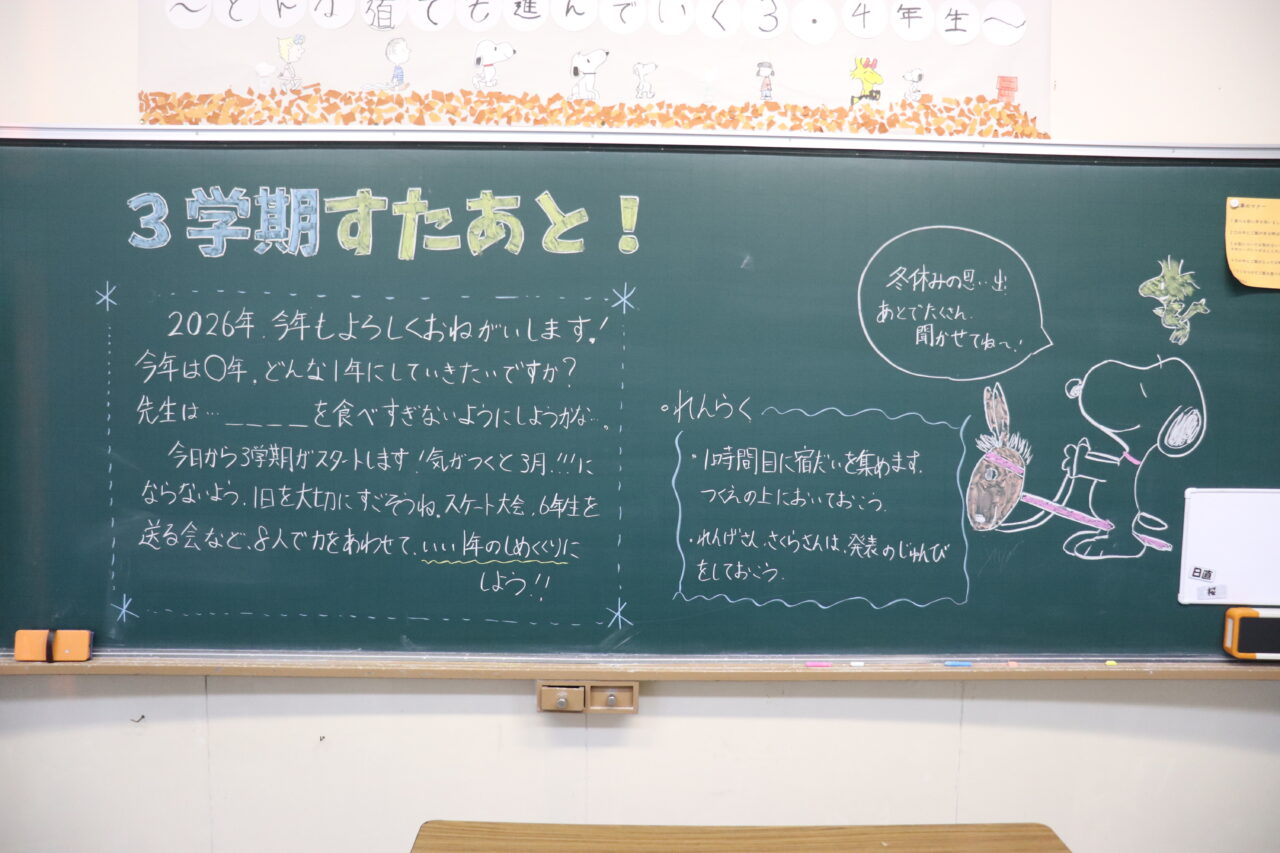 ～どんな道でも進んでいく3・4年生～
3学期すたあと!
2026年、今年もよろしくおねがいします!
今年は○年。どんな1年にしていきたいですか?
先生は…____を食べすぎないようにしようかな…。
今日から3学期がスタートします!気がつくと3月!!!に
ならないよう、1日を大切にすごそうね。スケート大会、6年生を
送る会など、8人で力をあわせて、いい1年のしめくくりに
しよう!!
冬休みの思い出
あとでたくさん
聞かせてね～!
・れんらく
・1時間目に宿だいを集めます。
つくえの上においておこう。
・れんげさん、さくらさんは、発表のじゅんび
をしておこう。
日直
桜